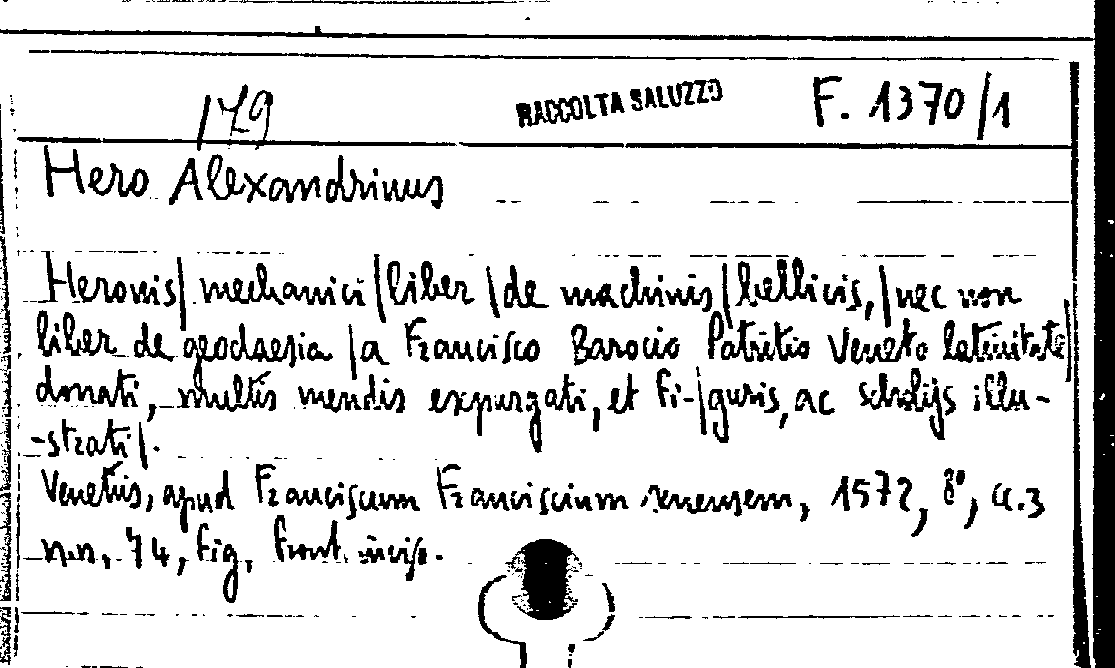 179 RACCOLTA SALUZZO F. 1370/1
Hero Alexandrinus
Heronis| mechanici |liber |de machinis |bellicis, |nec non
liber de geodaesia |a Francisco Barocio Patritio Veneto latinitate|
donati, multis mendis expurgati, et fi-|guris, ac scholijs illu-
-strati|.
Venetiis, apud Franciscum Franciscium senensem, 1572, 8°, cc.3
n.n, 74, fig, front. inciso.